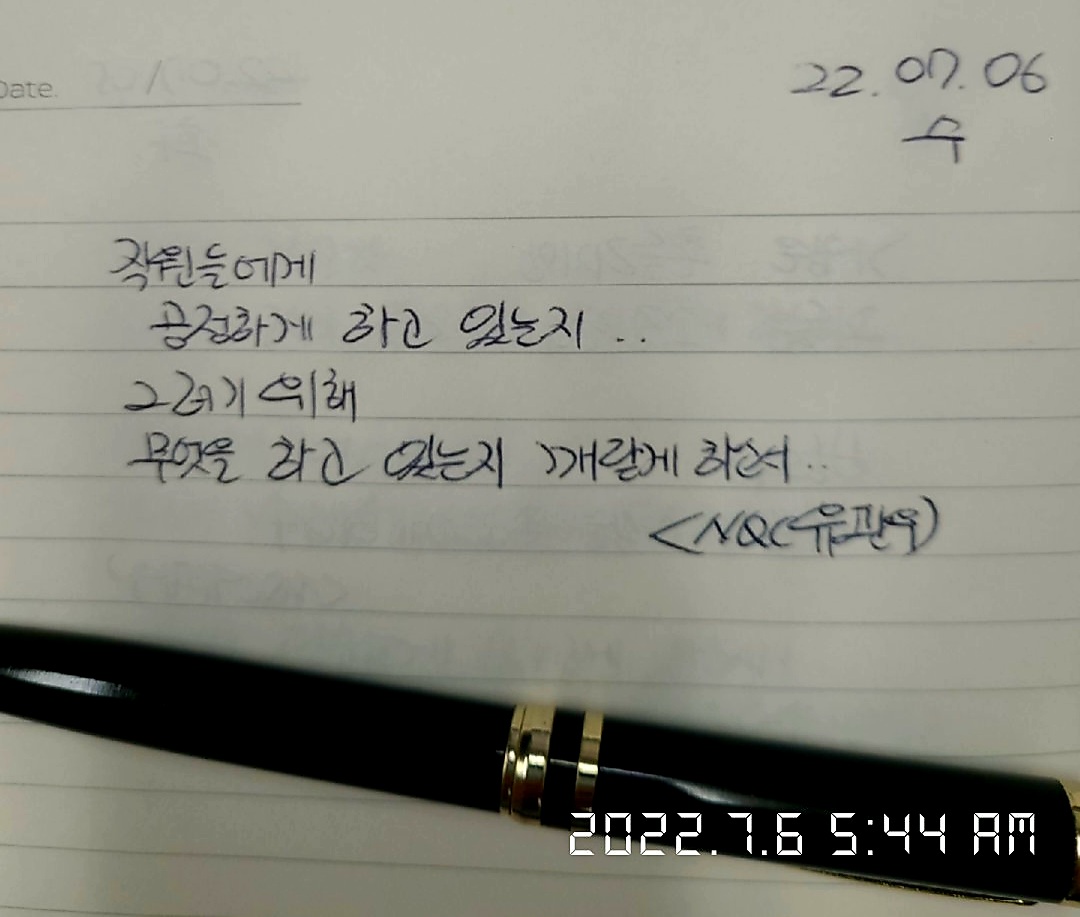 Date.
22.07.06
수
직원들에게
공정하게 하고 있는지..
그러기 위해
무엇을 하고 있는지 깨닫게 하소서..
<NQC(유관우)
2022.7.6 5:44 AM